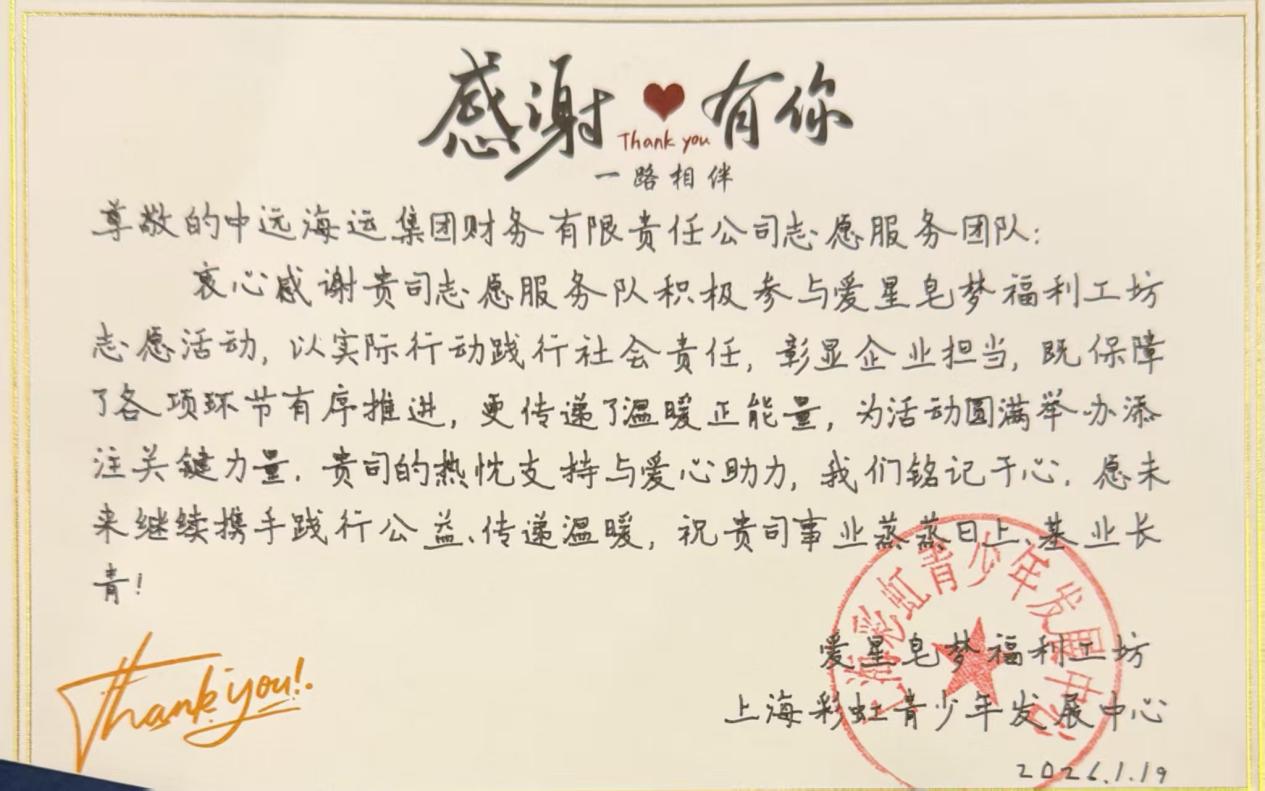 感谢有你
Thank you
一路相伴
尊敬的中远海运集团财务有限责任公司志愿服务团队:
衷心感谢贵司志愿服务队积极参与爱星皂梦福利工坊
志愿活动，以实际行动践行社会责任，彰显企业担当，既保障
了各项环节有序推进，更传递了温暖正能量，为活动圆满举办添
注关键力量．贵司的热忱支持与爱心助力，我们铭记于心．愿未
来继续携手践行公益、传递温暖，祝贵司事业蒸蒸日上、基业长
青！
爱星皂梦福利工坊
上海彩虹青少年发展中心
2026.1.19
Thank you!
上海彩虹青少年发展中心